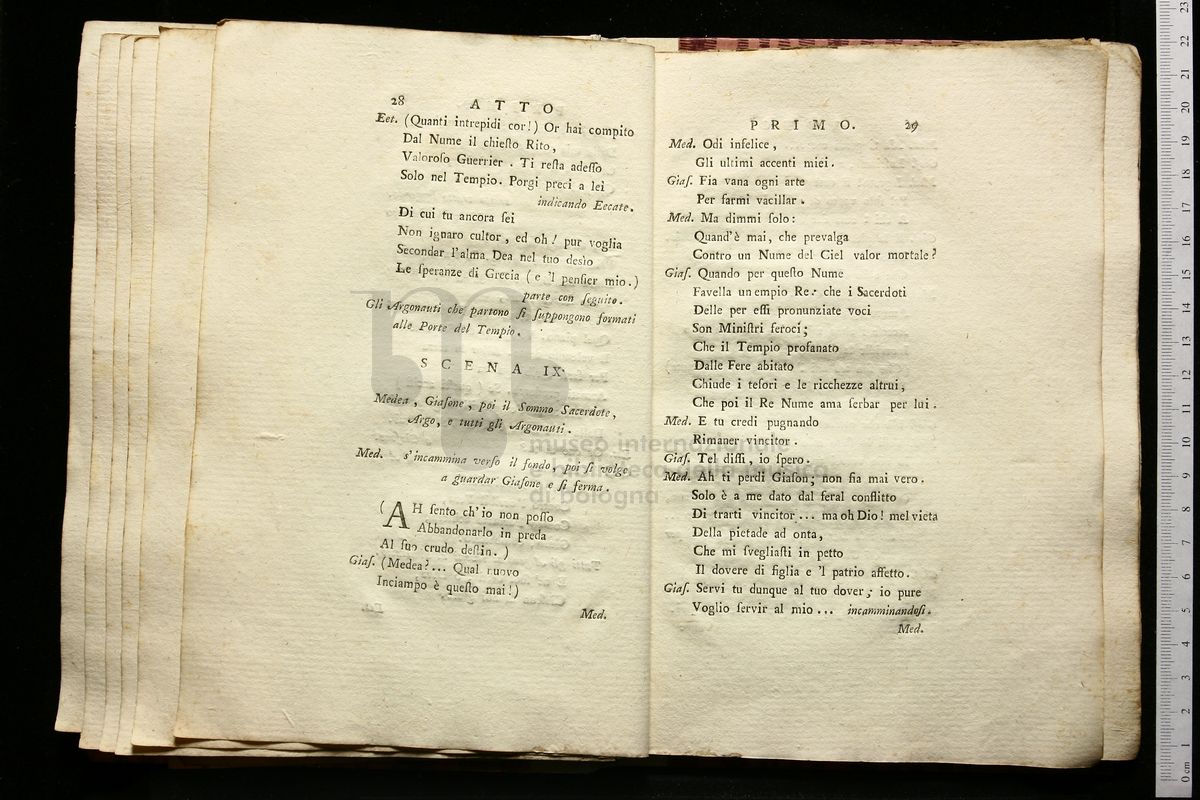 28 ATTO
Eet. (Quanti intrepidi cor!) Or hai compito
Dal Nume il chieſto Rito,
Valoroſo Guerrier. Ti reſta adeſſo
Solo nel Tempio. Porgi preci a lei
indicando Eecate.
Di cui tu ancora ſei
Non ignaro cultor, ed oh! pur voglia
Secondar l'alma Dea nel tuo desìo
Le ſperanze di Grecia (e 'l penſier mio.)
parte con ſeguito.
Gli Argonauti che partono ſi ſuppongono formati
alle Porte del Tempio.
SCENA IX.
Medea, Giaſone, poi il Sommo Sacerdote,
Argo, e tutti gli Argonauti.
Med. s'incammina verſo il fondo, poi ſi volge
a guardar Giaſone e ſi ferma.
(AH ſento ch'io non poſſo
Abbandonarlo in preda
Al ſuo crudo deſtin.)
Giaſ. (Medea?... Qual nuovo
Inciampo è queſto mai!)
Med.
PRIMO. 29
Med. Odi infelice,
Gli ultimi accenti miei.
Giaſ. Fia vana ogni arte
Per farmi vacillar.
Med. Ma dimmi ſolo:
Quand'è mai, che prevalga
Contro un Nume del Ciel valor mortale?
Giaſ. Quando per queſto Nume
Favella un empio Re: che i Sacerdoti
Delle per eſſi pronunziate voci
Son Miniſtri feroci;
Che il Tempio profanato
Dalle Fere abitato
Chiude i teſori e le ricchezze altrui,
Che poi il Re Nume ama ſerbar per lui.
Med. E tu credi pugnando
Rimaner vincitor.
Giaſ. Tel diſſi, io ſpero.
Med. Ah ti perdi Giaſon; non fia mai vero.
Solo è a me dato dal feral conflitto
Di trarti vincitor... ma oh Dio! mel vieta
Della pietade ad onta,
Che mi ſvegliaſti in petto
Il dovere di figlia e 'l patrio affetto.
Giaſ. Servi tu dunque al tuo dover; io pure
Voglio ſervir al mio... incamminandoſi.
Med.
museo internazionale
e biblioteca della musica
di bologna
0 cm 1 2 3 4 5 6 7 8 9 10 11 12 13 14 15 16 17 18 19 20 21 22 23